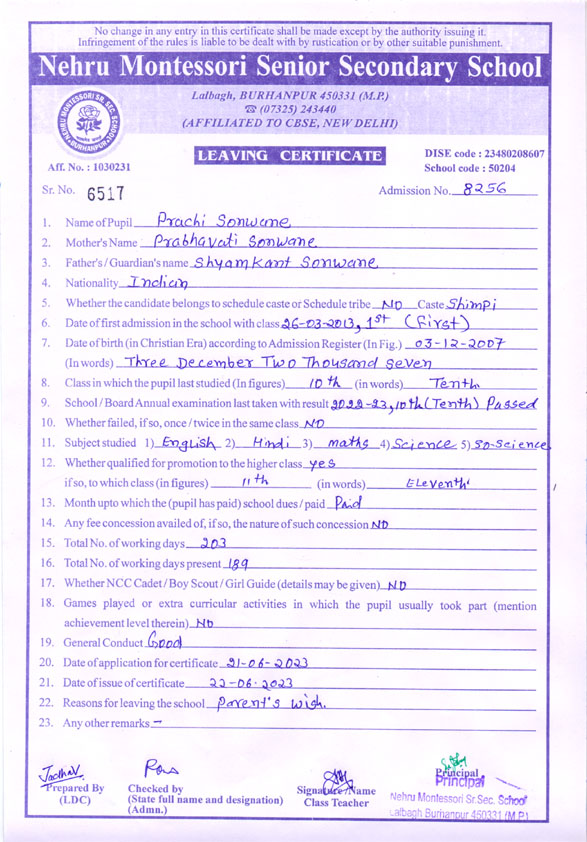 No change in any entry in this certificate shall be made except by the authority issuing it.
Infringement of the rules is liable to be dealt with by rustication or by other suitable punishment.
Nehru Montessori Senior Secondary School
NEHRU MONTESSORI SR. SEC. SCHOOL
BURHANPUR
Lalbagh, BURHANPUR 450331 (M.P.)
☎ (07325) 243440
(AFFILIATED TO CBSE, NEW DELHI)
LEAVING CERTIFICATE
DISE code : 23480208607
Aff. No. : 1030231
School code : 50204
Sr. No. 6517
Admission No. 8256
1. Name of Pupil Prachi Sonwane
2. Mother's Name Prabhavati Sonwane
3. Father's / Guardian's name Shyamkant Sonwane
4. Nationality Indian
5. Whether the candidate belongs to schedule caste or Schedule tribe NO Caste Shimpi
6. Date of first admission in the school with class 26-03-2013, 1st (First)
7. Date of birth (in Christian Era) according to Admission Register (In Fig.) 03-12-2007
(In words) Three December Two Thousand Seven
8. Class in which the pupil last studied (In figures) 10th (in words) Tenth
9. School / Board Annual examination last taken with result 2022-23, 10th (Tenth) Passed
10. Whether failed, if so, once / twice in the same class NO
11. Subject studied 1) English 2) Hindi 3) maths 4) Science 5) So-Science
12. Whether qualified for promotion to the higher class yes
if so, to which class (in figures) 11th (in words) Eleventh
13. Month upto which the (pupil has paid) school dues / paid Paid
14. Any fee concession availed of, if so, the nature of such concession NO
15. Total No. of working days 203
16. Total No. of working days present 189
17. Whether NCC Cadet / Boy Scout / Girl Guide (details may be given) NO
18. Games played or extra curricular activities in which the pupil usually took part (mention
achievement level therein) NO
19. General Conduct Good
20. Date of application for certificate 21-06-2023
21. Date of issue of certificate 22-06-2023
22. Reasons for leaving the school Parent's wish.
23. Any other remarks –
Jadhav
Prepared By
(LDC)
Checked by
(State full name and designation)
(Admn.)
Signature / Name
Class Teacher
Principal
Principal
Nehru Montessori Sr. Sec. School
Lalbagh Burhanpur 450331 (M.P.)